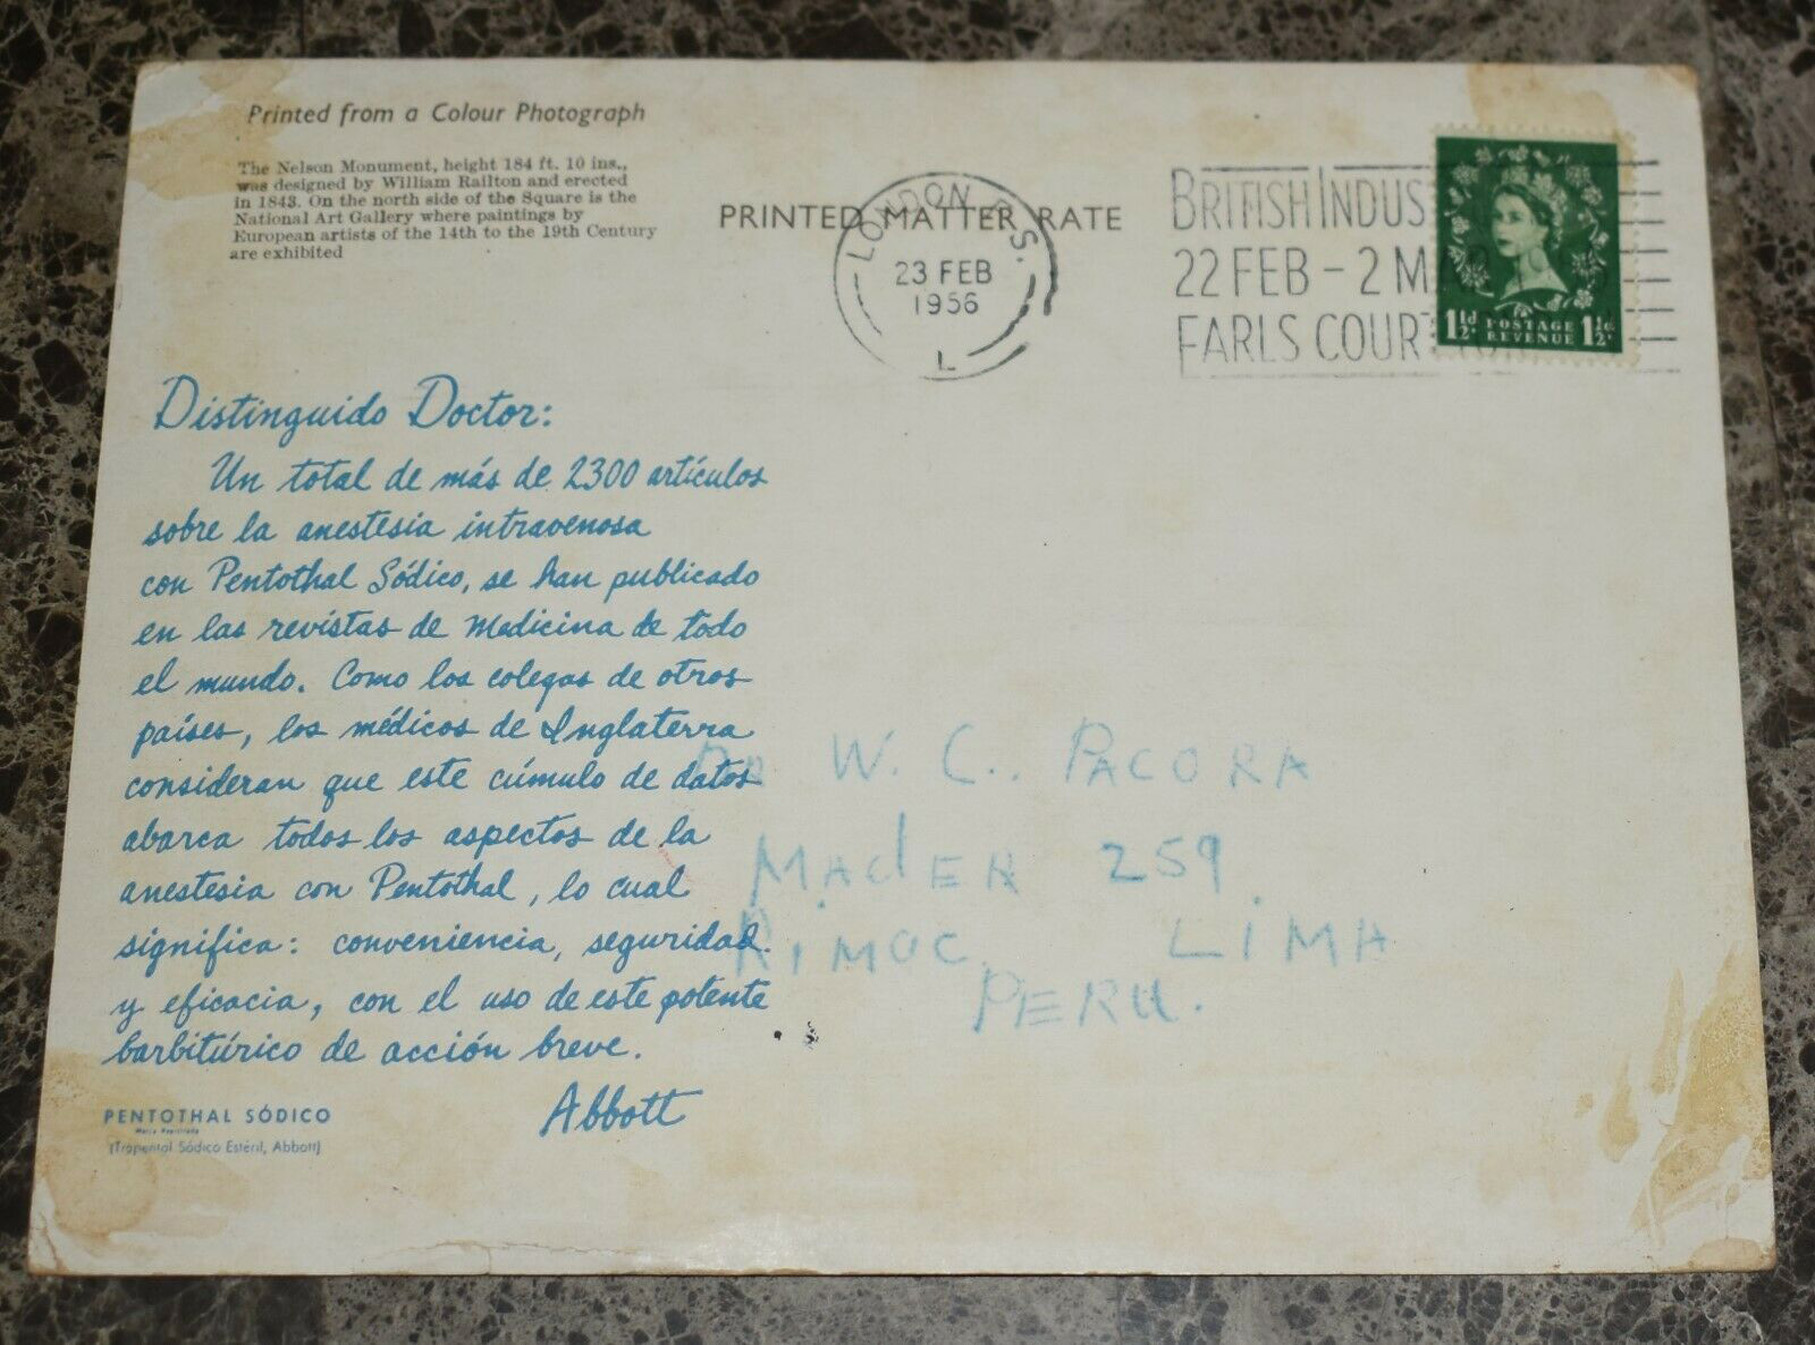 Printed from a Colour Photograph
The Nelson Monument, height 184 ft. 10 ins.,
was designed by William Railton and erected
in 1843. On the north side of the Square is the
National Art Gallery where paintings by
European artists of the 14th to the 19th Century
are exhibited
PRINTED MATTER RATE
LONDON
23 FEB
1956
L
BRITISH INDUS
22 FEB - 2 M
EARLS COURT
1½d POSTAGE REVENUE 1½d
Distinguido Doctor:
Un total de más de 2300 artículos
sobre la anestesia intravenosa
con Pentothal Sódico, se han publicado
en las revistas de Medicina de todo
el mundo. Como los colegas de otros
países, los médicos de Inglaterra
consideran que este cúmulo de datos
abarca todos los aspectos de la
anestesia con Pentothal, lo cual
significa: conveniencia, seguridad
y eficacia, con el uso de este potente
barbitúrico de acción breve.
Abbott
PENTOTHAL SÓDICO
Marca Registrada
(Tiopental Sódico Estéril, Abbott)
DR W. C. PACORA
259
LiMA
PERU.